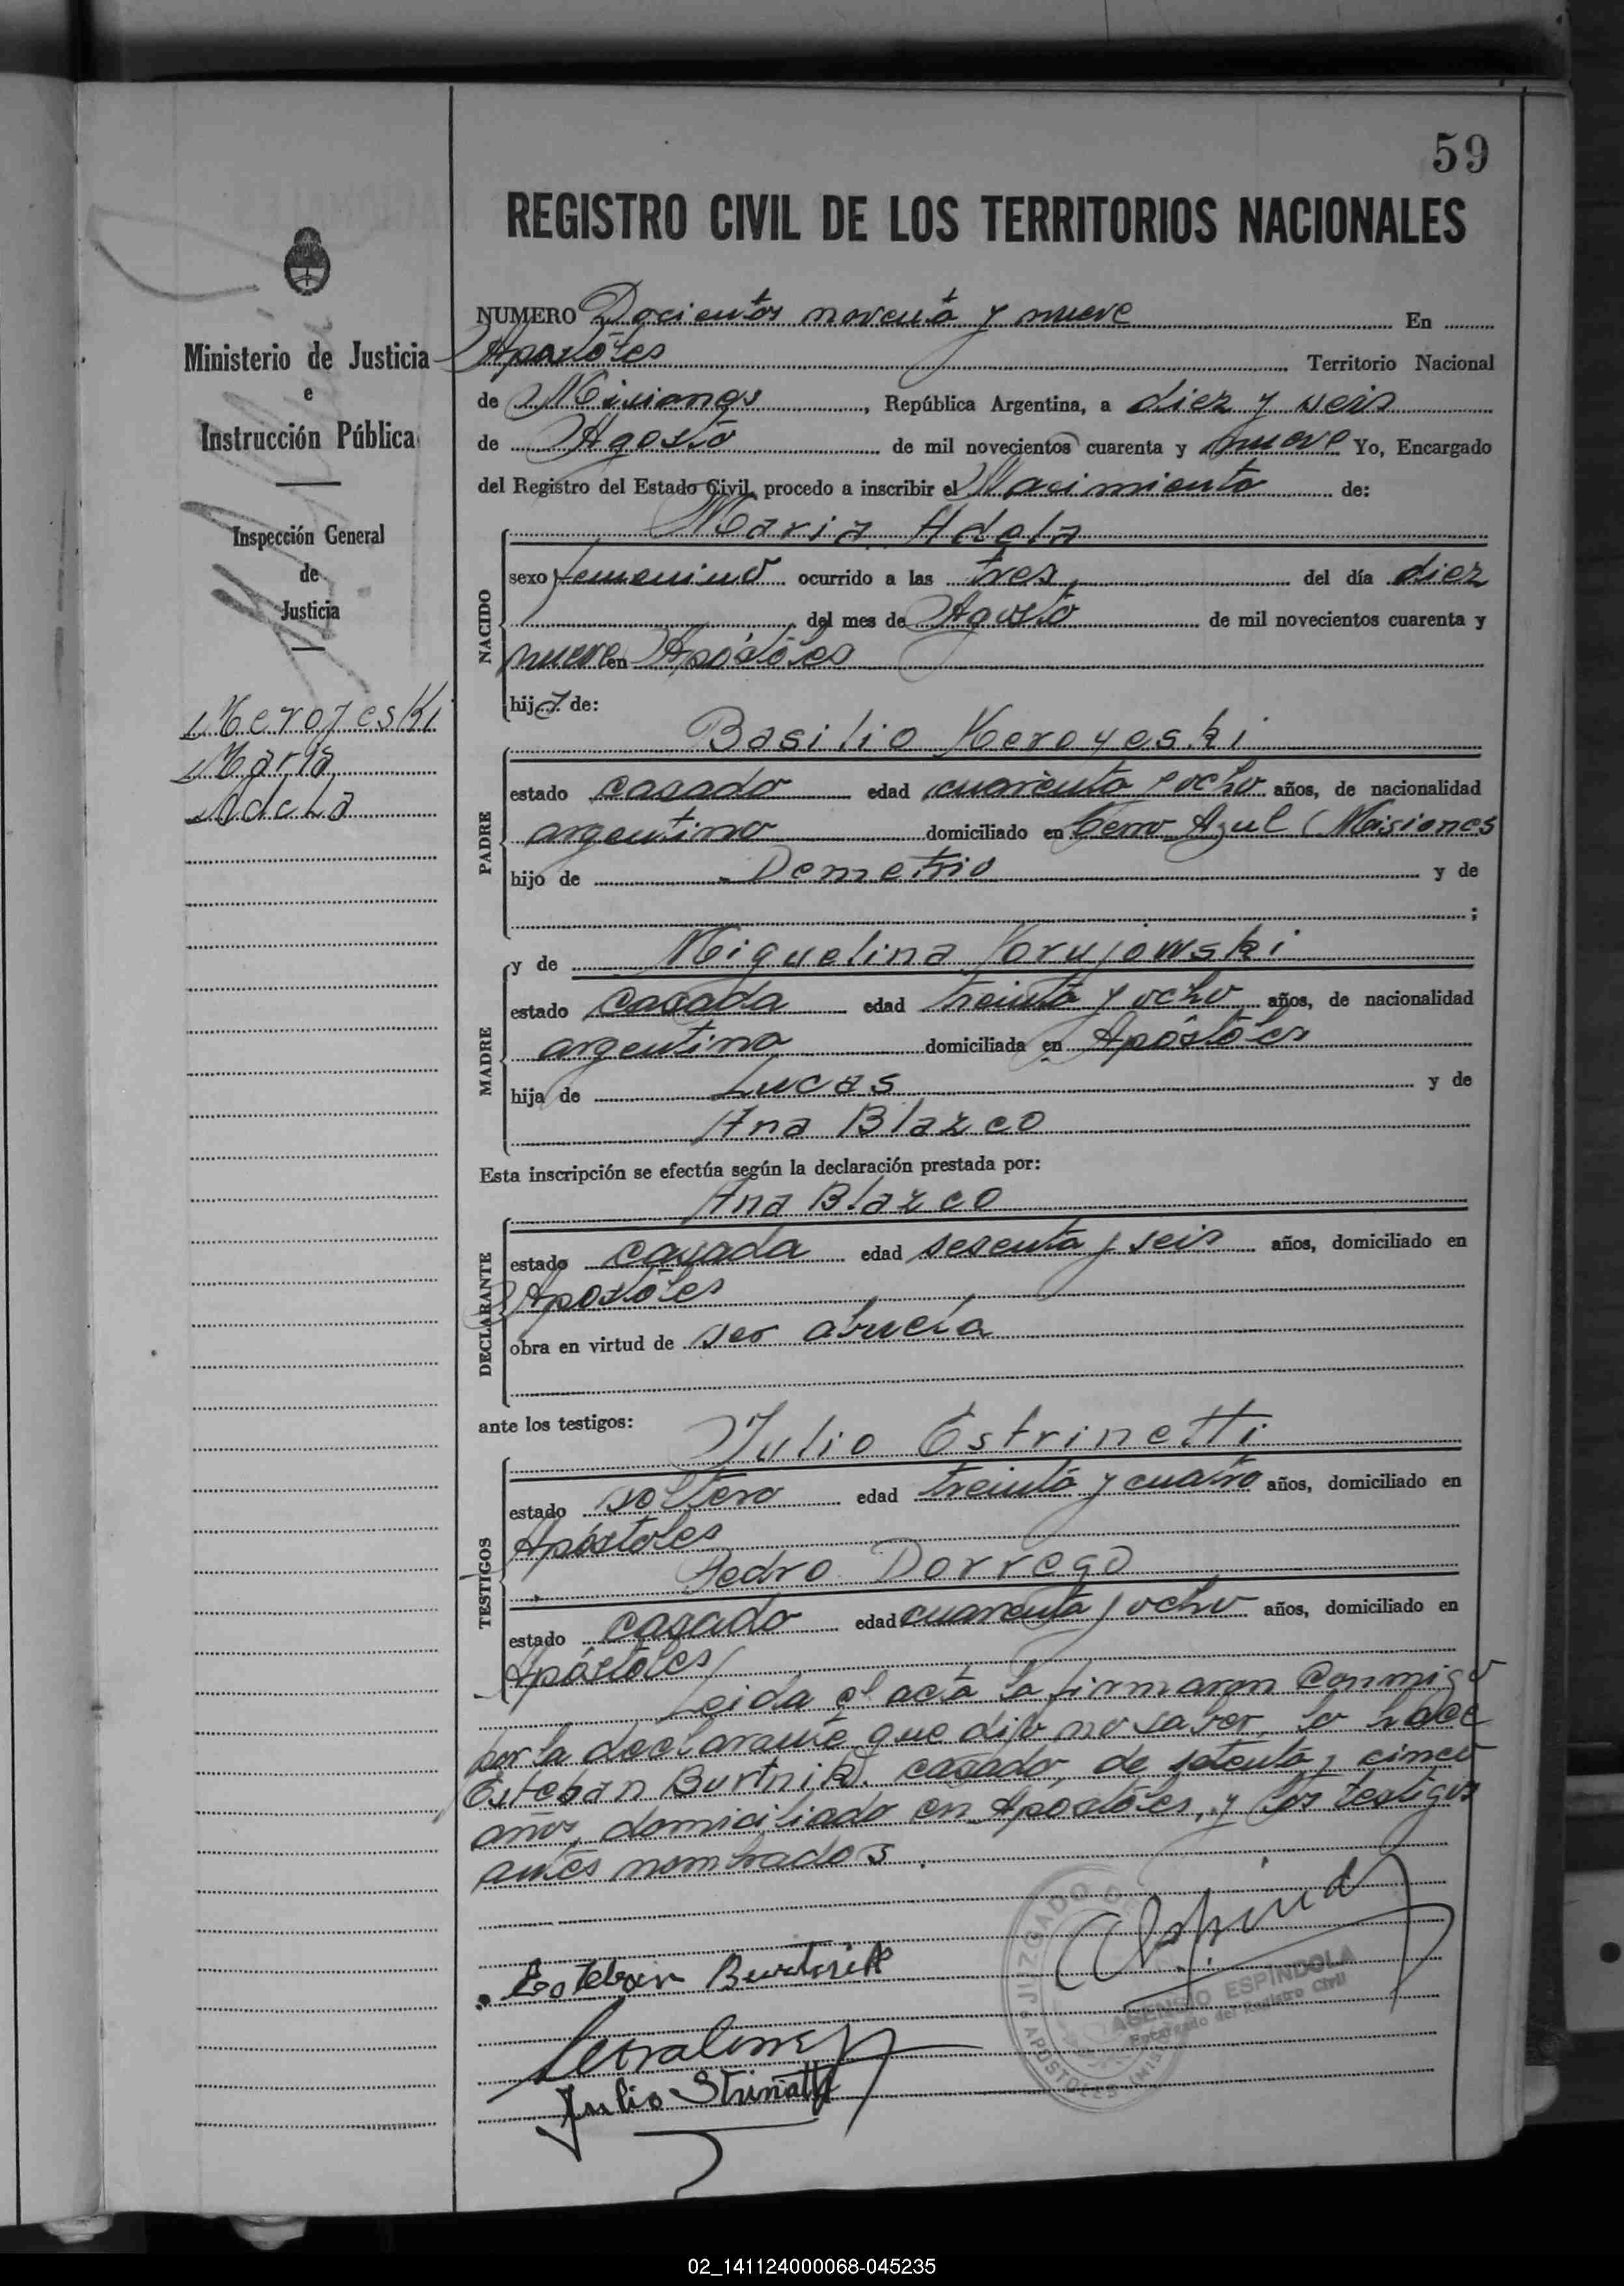 59
REGISTRO CIVIL DE LOS TERRITORIOS NACIONALES
Ministerio de Justicia
e
Instrucción Pública
Inspección General
de
Justicia
Meroyeski
Maria
Adela
NUMERO Docientos noventa y nueve En
Apostoles Territorio Nacional
de Misiones, República Argentina, a diez y seis
de Agosto de mil novecientos cuarenta y nueve Yo, Encargado
del Registro del Estado Civil, procedo a inscribir el Nacimiento de:
Maria Adela
NACIDO
sexo femenino ocurrido a las tres del día diez
del mes de Agosto de mil novecientos cuarenta y
nueve en Apóstoles
hija de:
Basilio Meroyeski
PADRE
estado casado edad cuarenta y ocho años, de nacionalidad
argentino domiciliado en Cerro Azul (Misiones
hijo de Demetrio y de
;
y de Miguelina
MADRE
estado casada edad treinta y ocho años, de nacionalidad
argentina domiciliada en Apóstoles
hija de Lucas y de
Ana Blazco
Esta inscripción se efectúa según la declaración prestada por:
Ana Blazco
DECLARANTE
estado casada edad sesenta y seis años, domiciliado en
Apostoles
obra en virtud de ser abuela
ante los testigos:
Julio Estrinetti
TESTIGOS
estado soltero edad treinta y cuatro años, domiciliado en
Apóstoles
Pedro Dorrego
estado casado edad cuarenta y ocho años, domiciliado en
Apóstoles
Leida el acta la firmaron conmigo
por la declarante que dijo no saber, lo hace
Esteban Burtnik. casado, de setenta y cinco
años, domiciliado en Apostoles, y los testigos
antes nombrados.
Esteban Burtnik
JUZGADO
ASENCIO ESPINDOLA
Encargado del Registro Civil
APOSTOLES
Julio Strinatti
02_141124000068-045235